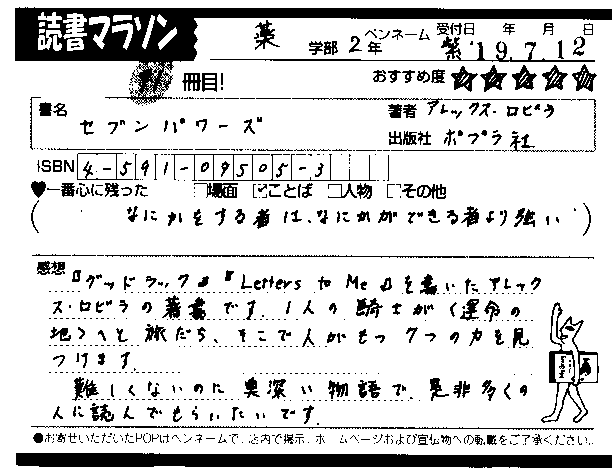 読書マラソン
薬 学部 2年 ペンネーム 紫 受付日 年 月 日 '19.7.12
冊目! おすすめ度 ☆☆☆☆☆
書名 セブンパワーズ
著者 アレックス・ロビラ
出版社 ポプラ社
ISBN 4-591-09505-3
♥一番心に残った □場面 ☑ことば □人物 □その他
( なにかをする者は、なにかができる者より強い )
感想
『グッドラック』『Letters to Me』を書いたアレック
ス・ロビラの著書です。1人の騎士が〈運命の
地〉へと旅だち、そこで人がもつ7つの力を見
つけます。
難しくないのに奥深い物語で、是非多くの
人に読んでもらいたいです。
●お寄せいただいたPOPはペンネームで、店内で掲示、ホームページおよび宣伝物への転載をご了承ください。